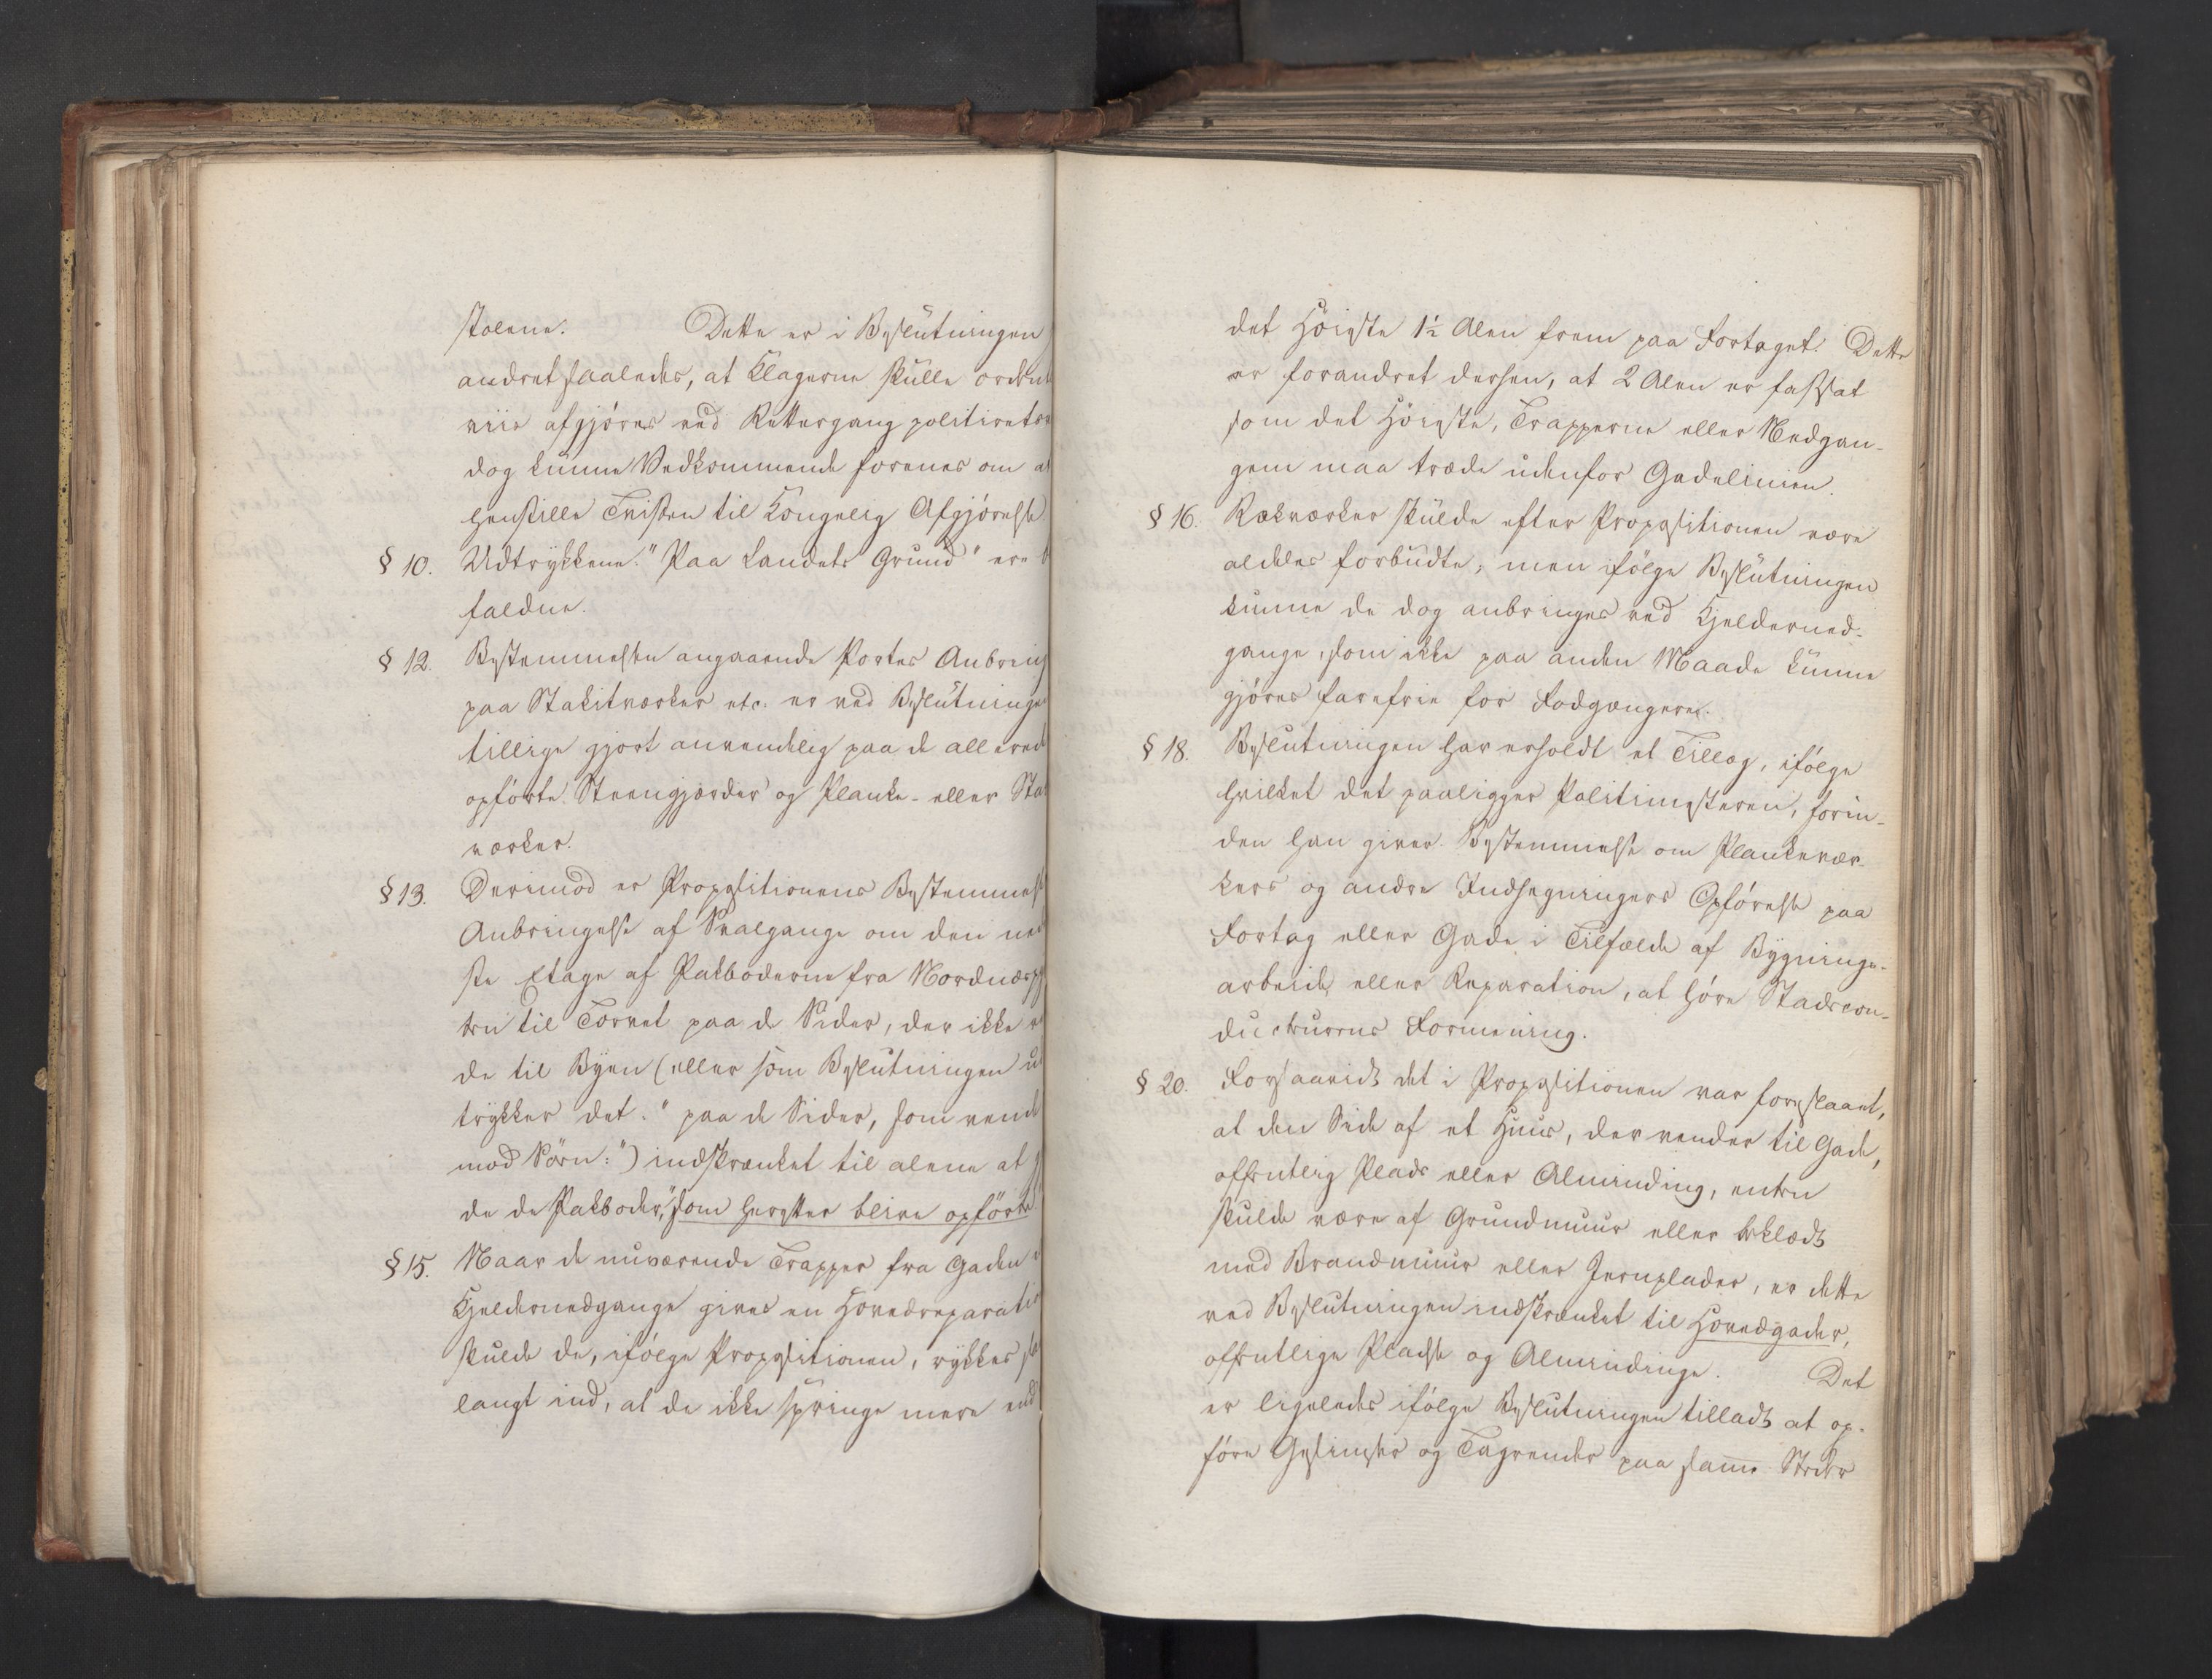 stolene. Dette er i Beslutningen
andret saaledes, at Klagerne skulle ordent
viis afgjøres ved Rettergang politiretsv
dog kunne Vedkommende forenes om at
henstille Tvisten til Kongelig Afgjørelse.
§ 10. Udtrykkene: "Paa Landets Grund" ere b
faldne.
§ 12. Bestemmelsen angaaende Portes Anbring
paa Stakitværker etc. er ved Beslutninge
tillige gjort anvendelig paa de allerede
opførte Steengjærder og Planke- eller Sta
værker.
§ 13. Derimod er Propositionens Bestemmels
Anbringelse af Svalgange om den ned
ste Etage af Pakboderne fra Nordnæspy
ten til Torvet paa de Sider, der ikke v
de til Byen (eller som Beslutningen ud
trykker det: "paa de Sider, som vende
mod Søen:") indskrænket til alene at g
de de Pakboder, "som herefter blive opførte."
§ 15. Naar de nuværende Trapper fra Gaden i
Kjeldernedgange gives en Hovedreparatio
skulde de, ifølge Propositionen, rykkes saa
langt ind, at de ikke springe mere end
det Høieste 1½ Alen frem paa Fortoget. Dette
er forandret derhen, at 2 Alen er fastsat
som det Høieste, Trapperne eller Nedgan-
gene maa træde udenfor Gadelinien.
§ 16. Rækværker skulde efter Propositionen være
aldeles forbudte; men ifølge Beslutningen
kunne de dog anbringes ved Kjelderned-
gange, som ikke paa anden Maade kunne
gjøres farefrie for Fodgængere.
§ 18. Beslutningen har erholdt et Tillæg, ifølge
hvilket det paaligger Politimesteren, forin-
den han giver Bestemmelse om Plankevær-
kers og andre Indhegningers Opførelse paa
Fortog eller Gade i Tilfælde af Bygnings-
arbeide eller Reparation, at høre Stadscon-
ducteurens Formening.
§ 20. Forsaavidt det i Propositionen var foreslaaet,
at den Side af et Huus, der vender til Gade,
offentlig Plads eller Alminding, enten
skulde være af Grundmuur eller beklædt
med Brandmuur eller Jernplader, er dette
ved Beslutningen indskrænket til Hovedgader,
offentlige Pladse og Almindinge. Det
er ligeledes ifølge Beslutningen tilladt at op-
føre Gesimser og Tagrender paa samme Steder